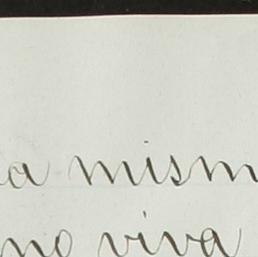 a mism
no viva